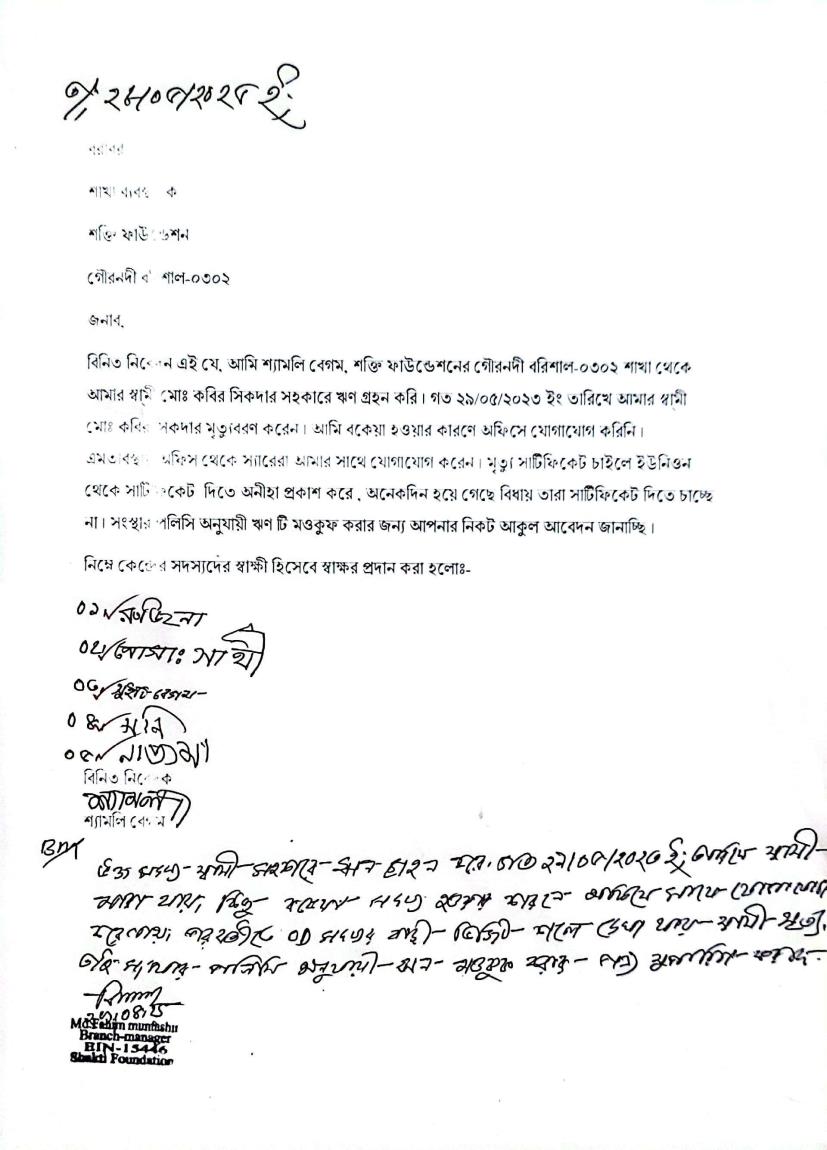 ২৮/০৫/২০২৫ ইং
বরাবর
শাখা ব্যবস্থাপক
শক্তি ফাউন্ডেশন
গৌরনদী বরিশাল-০৩০২
জনাব,
বিনিত নিবেদন এই যে, আমি শ্যামলি বেগম, শক্তি ফাউন্ডেশনের গৌরনদী বরিশাল-০৩০২ শাখা থেকে
আমার স্বামী মোঃ কবির সিকদার সহকারে ঋণ গ্রহন করি। গত ২৯/০৫/২০২৩ ইং তারিখে আমার স্বামী
মোঃ কবির সিকদার মৃত্যুবরণ করেন। আমি বকেয়া হওয়ার কারণে অফিসে যোগাযোগ করিনি।
এমতাবস্থায় অফিস থেকে স্যারেরা আমার সাথে যোগাযোগ করেন। মৃত্যু সাটিফিকেট চাইলে ইউনিওন
থেকে সাটিফিকেট দিতে অনীহা প্রকাশ করে, অনেকদিন হয়ে গেছে বিধায় তারা সাটিফিকেট দিতে চাচ্ছে
না। সংস্থার পলিসি অনুযায়ী ঋণ টি মওকুফ করার জন্য আপনার নিকট আকুল আবেদন জানাচ্ছি।
নিম্নে কেন্দ্রের সদস্যদের স্বাক্ষী হিসেবে স্বাক্ষর প্রদান করা হলোঃ-
০১/ রুজিনা
০২/ মোসাঃ সাথী
০৩/ বেগম
০৪/ মনি
০৫/ নাজমা
বিনিত নিবেদক
শ্যামলী
শ্যামলি বেগম
BM
উক্ত সদস্য স্বামী সহকারে ঋন গ্রহন করে, গত ২৯/০৫/২০২৩ ইং তারিখে স্বামী
মারা যায়, কিন্তু বকেয়া সদস্য হওয়ার কারনে অফিসে সাথে যোগাযোগ
করে নাই, পরবর্তীতে OD সদস্যর বাড়ী ভিজিট গেলে দেখা যায় স্বামী মৃত্যু,
তাই সংস্থার পলিসি অনুযায়ী ঋন মওকুফ করার জন্য সুপারিশ করছি.
Md Fahim munfashu
Branch-manager
BIN-15446
Shakti Foundation